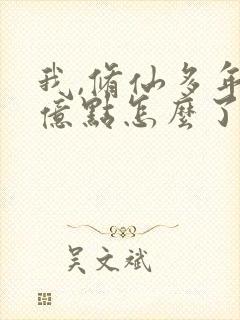 我,脩仙多年
億點怎麼了
吴文斌